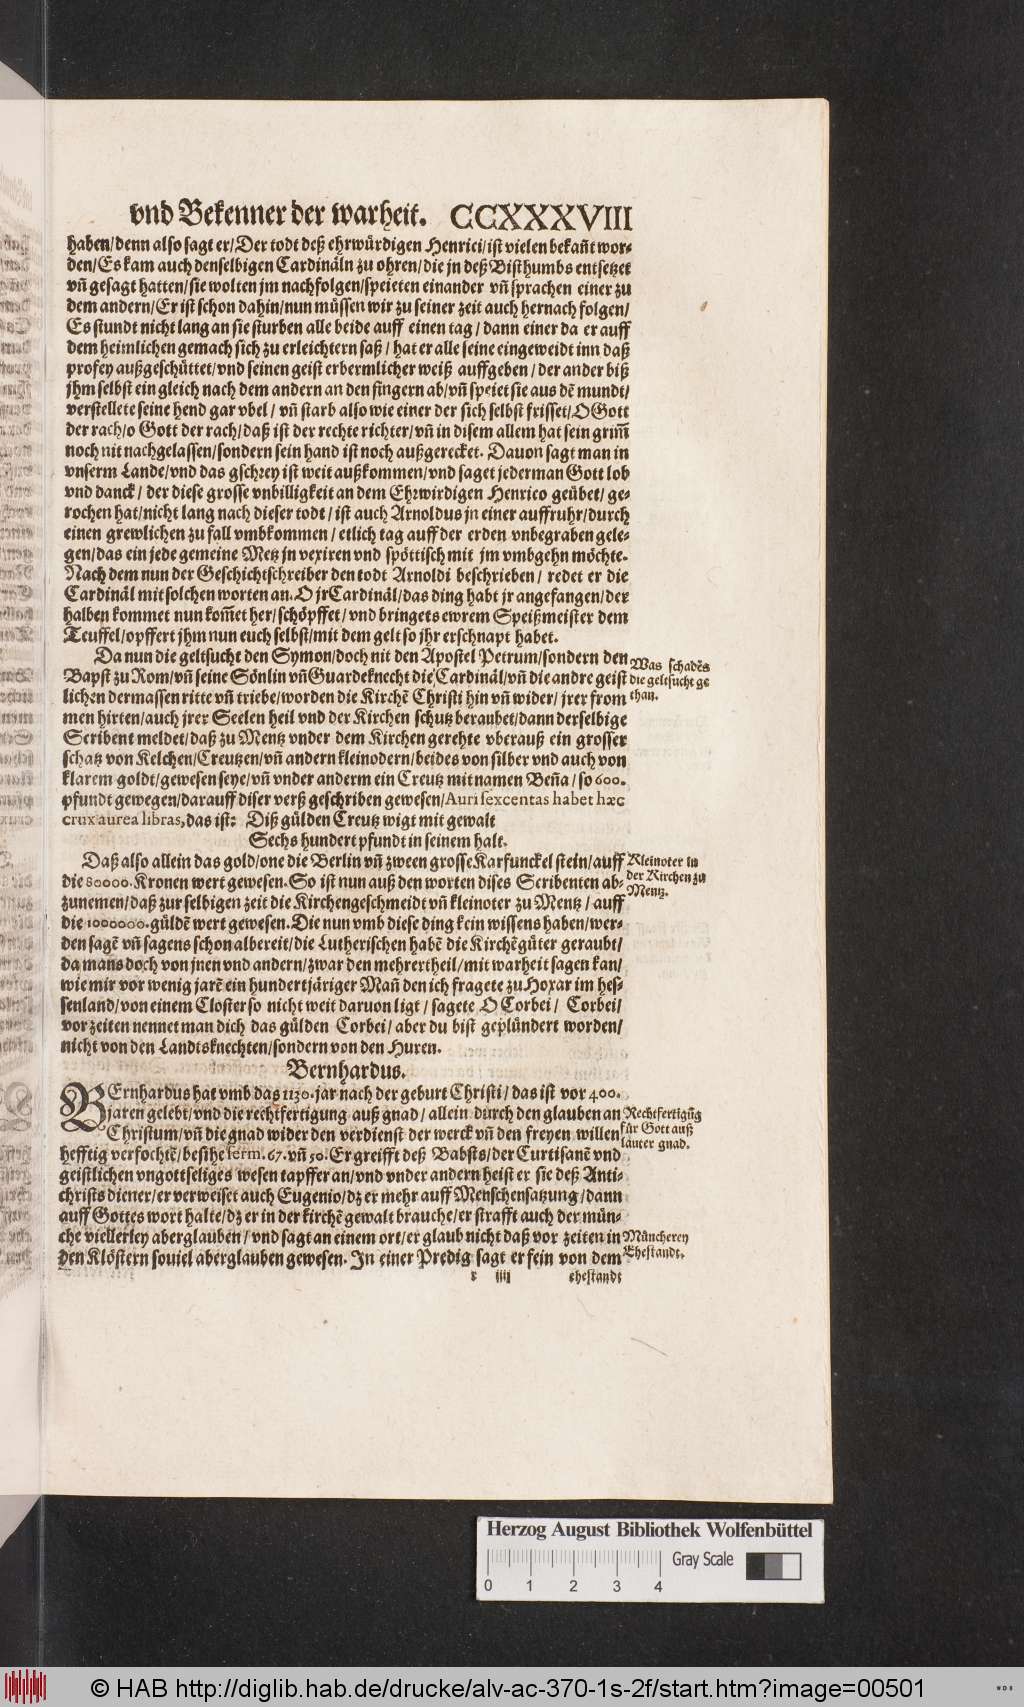 vnd Bekenner der warheit. CCXXXVIII
haben/denn also sagt er/Der todt deß ehrwürdigen Henrici/ist vielen bekañt wor-
den/Es kam auch denselbigen Cardinäln zu ohren/die jn deß Bisthumbs entsetzet
vñ gesagt hatten/sie wolten jm nachfolgen/speieten einander vñ sprachen einer zu
dem andern/Er ist schon dahin/nun müssen wir zu seiner zeit auch hernach folgen/
Es stundt nicht lang an sie sturben alle beide auff einen tag/dann einer da er auff
dem heimlichen gemach sich zu erleichtern saß/hat er alle seine eingeweidt inn daß
profey außgeschüttet/vnd seinen geist erbermlicher weiß auffgeben/der ander biß
jhm selbst ein gleich nach dem andern an den fingern ab/vñ speiet sie aus dē mundt/
verstellete seine hend gar vbel/vñ starb also wie einer der sich selbst frisset/O Gott
der rach/o Gott der rach/daß ist der rechte richter/vñ in disem allem hat sein grim̄
noch nit nachgelassen/sondern sein hand ist noch außgerecket. Dauon sagt man in
vnserm Lande/vnd das gschrey ist weit außkommen/vnd saget jederman Gott lob
vnd danck/der diese grosse vnbilligkeit an dem Ehrwirdigen Henrico geübet/ge-
rochen hat/nicht lang nach dieser todt/ist auch Arnoldus jn einer auffruhr/durch
einen grewlichen zu fall vmbkommen/etlich tag auff der erden vnbegraben gele-
gen/das ein jede gemeine Metz jn vexiren vnd spöttisch mit jm vmbgehn möchte.
Nach dem nun der Geschichtschreiber den todt Arnoldi beschrieben/redet er die
Cardinäl mit solchen worten an. O jr Cardinäl/das ding habt jr angefangen/der
halben kommet nun kom̄et her/schöpffet/vnd bringets ewrem Speißmeister dem
Teuffel/opffert jhm nun euch selbst/mit dem gelt so jhr erschnapt habet.
Da nun die geltsucht den Symon/doch nit den Apostel Petrum/sondern den
Bapst zu Rom/vñ seine Sönlin vñ Guardeknecht die Cardinäl/vñ die andre geist
lichen dermassen ritte vñ triebe/worden die Kirchē Christi hin vñ wider/jrer from
men hirten/auch jrer Seelen heil vnd der Kirchen schutz beraubet/dann derselbige
Scribent meldet/daß zu Mentz vnder dem Kirchen gerehte vberauß ein grosser
schatz von Kelchen/Creutzen/vñ andern kleinodern/beides von silber vnd auch von
klarem goldt/gewesen seye/vñ vnder anderm ein Creutz mit namen Beña/so 600.
pfundt gewegen/darauff diser verß geschriben gewesen/Auri sexcentas habet hæc
crux aurea libras, das ist: Diß gülden Creutz wigt mit gewalt
Sechs hundert pfundt in seinem halt.
Was schadēs
die geltsucht ge
than.
Daß also allein das gold/one die Berlin vñ zween grosse Karfunckel stein/auff
die 80000. Kronen wert gewesen. So ist nun auß den worten dises Scribenten ab-
zunemen/daß zur selbigen zeit die Kirchengeschmeidt vñ kleinoter zu Mentz/auff
die 1000000. güldē wert gewesen. Die nun vmb diese ding kein wissens haben/wer-
den sagē vñ sagens schon albereit/die Lutherischen habē die Kirchēgüter geraubt/
da mans doch von jnen vnd andern/zwar den mehrertheil/mit warheit sagen kan/
wie mir vor wenig jarē ein hundertjäriger Mañ den ich fragete zu Hoxar im hes-
senland/von einem Closter so nicht weit daruon ligt/sagete O Corbei/ Corbei/
vor zeiten nennet man dich das gülden Corbei/aber du bist geplündert worden/
nicht von den Landtsknechten/sondern von den Huren.
Kleinoter in
der Kirchen zu
Mentz.
Bernhardus.
BErnhardus hat vmb das 1130. jar nach der geburt Christi/das ist vor 400.
jaren gelebt/vnd die rechtfertigung auß gnad/allein durch den glauben an
Christum/vñ die gnad wider den verdienst der werck vñ den freyen willen
hefftig verfochtē/besihe serm. 67. vñ 50. Er greifft deß Babsts/der Curtisanē vnd
geistlichen vngottseliges wesen tapffer an/vnd vnder andern heist er sie deß Anti-
christs diener/er verweiset auch Eugenio/dz er mehr auff Menschensatzung/dann
auff Gottes wort halte/dz er in der kirchē gewalt brauche/er strafft auch der mün-
che viellerley aberglauben/vnd sagt an einem ort/er glaub nicht daß vor zeiten in
den Klöstern souiel aberglauben gewesen. In einer Predig sagt er fein von dem
Rechtfertigūg
für Gott auß
lauter gnad.
Müncherey
Ehestandt.
r iiij ehestandt
Herzog August Bibliothek Wolfenbüttel
Gray Scale
0 1 2 3 4
© HAB http://diglib.hab.de/drucke/alv-ac-370-1s-2f/start.htm?image=00501